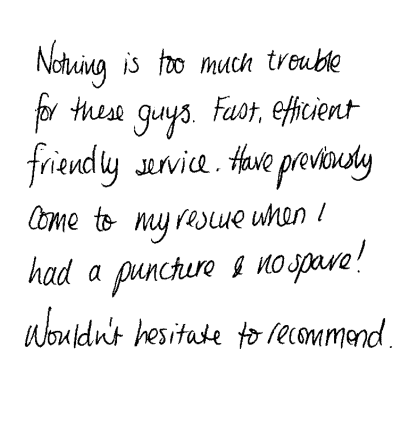 Nothing is too much trouble
for these guys. Fast, efficient
friendly service. Have previously
come to my rescue when I
had a puncture & no spare!
Wouldn't hesitate to recommend.